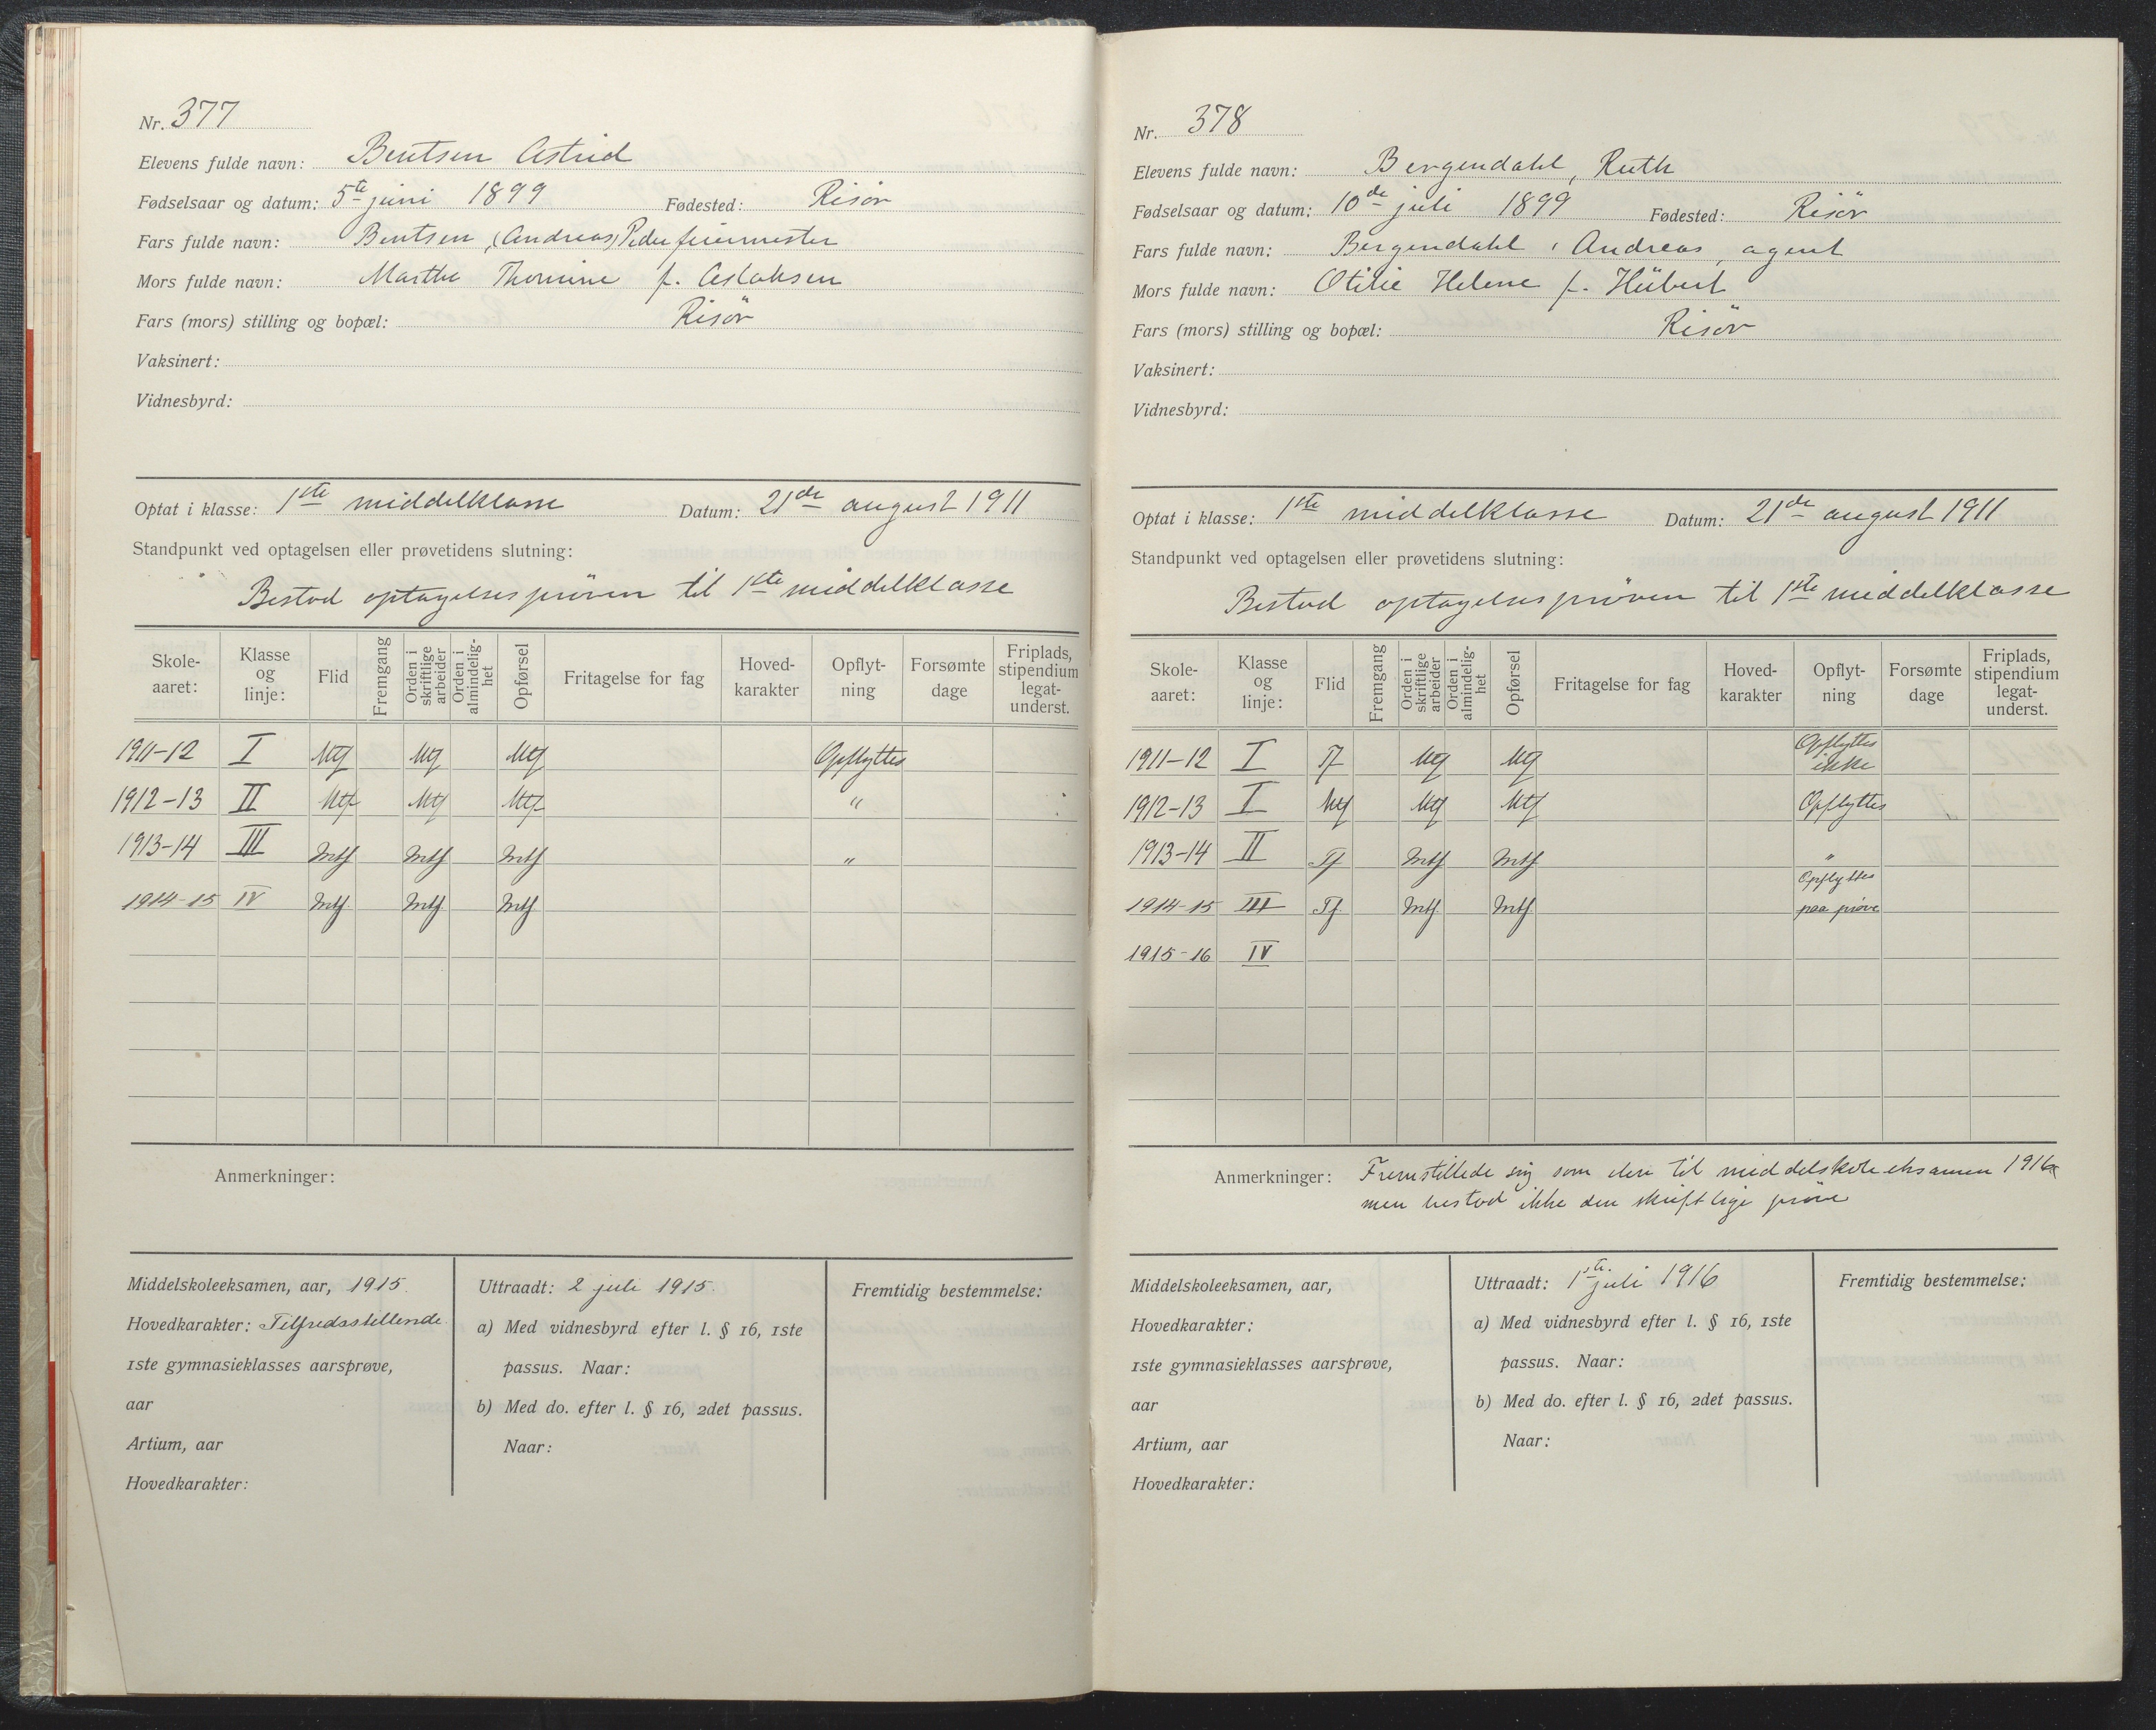 Nr. 377
Elevens fulde navn: Bentsen Astrid
Fødselsaar og datum: 5te juni 1899 Fødested: Risör
Fars fulde navn: Bentsen, (Andreas) Peder feiermester
Mors fulde navn: Marthe Thomine f. Aslaksen
Fars (mors) stilling og bopæl: Risör
Vaksinert:
Vidnesbyrd:
Optat i klasse: 1ste middelklasse Datum: 21de august 1911
Standpunkt ved optagelsen eller prøvetidens slutning:
Bestod optagelsespröven til 1ste middelklasse
Skole-aaret: Klasse og linje: Flid Fremgang Orden i skriftlige arbeider Orden i almindelig-het Opførsel Fritagelse for fag Hoved-karakter Opflyt-ning Forsømte dage Friplads, stipendium legat-underst.
1911-12 I Mg Mg Mg Opflyttes
1912-13 II Mtf Mtf Mtf "
1913-14 III Mtf Mtf Mtf "
1914-15 IV Mtf Mtf Mtf
Anmerkninger:
Middelskoleeksamen, aar, 1915.
Hovedkarakter: Tilfredsstillende.
1ste gymnasieklasses aarsprøve,
aar
Artium, aar
Hovedkarakter:
Uttraadt: 2 juli 1915.
a) Med vidnesbyrd efter l. § 16, 1ste
passus. Naar:
b) Med do. efter l. § 16, 2det passus.
Naar:
Fremtidig bestemmelse:
Nr. 378
Elevens fulde navn: Bergendahl, Ruth
Fødselsaar og datum: 10de juli 1899 Fødested: Risör
Fars fulde navn: Bergendahl, Andreas, agent
Mors fulde navn: Otilie Helene f. Hübert
Fars (mors) stilling og bopæl: Risör
Vaksinert:
Vidnesbyrd:
Optat i klasse: 1ste middelklasse Datum: 21de august 1911
Standpunkt ved optagelsen eller prøvetidens slutning:
Bestod optagelsespröven til 1ste middelklasse
Skole-aaret: Klasse og linje: Flid Fremgang Orden i skriftlige arbeider Orden i almindelig-het Opførsel Fritagelse for fag Hoved-karakter Opflyt-ning Forsømte dage Friplads, stipendium legat-underst.
1911-12 I Tf Mg Mg Opflyttes ikke
1912-13 I Mtf Mtf Mtf Opflyttes
1913-14 II Tf Mtf Mtf "
1914-15 III Tf. Mtf. Mtf. Opflyttes paa prøve
1915-16 IV
Anmerkninger: Fremstillede sig som elev til middelskoleeksamen 1916
men bestod ikke den skriftlige prøve
Middelskoleeksamen, aar,
Hovedkarakter:
1ste gymnasieklasses aarsprøve,
aar
Artium, aar
Hovedkarakter:
Uttraadt: 1ste juli 1916
a) Med vidnesbyrd efter l. § 16, 1ste
passus. Naar:
b) Med do. efter l. § 16, 2det passus.
Naar:
Fremtidig bestemmelse: